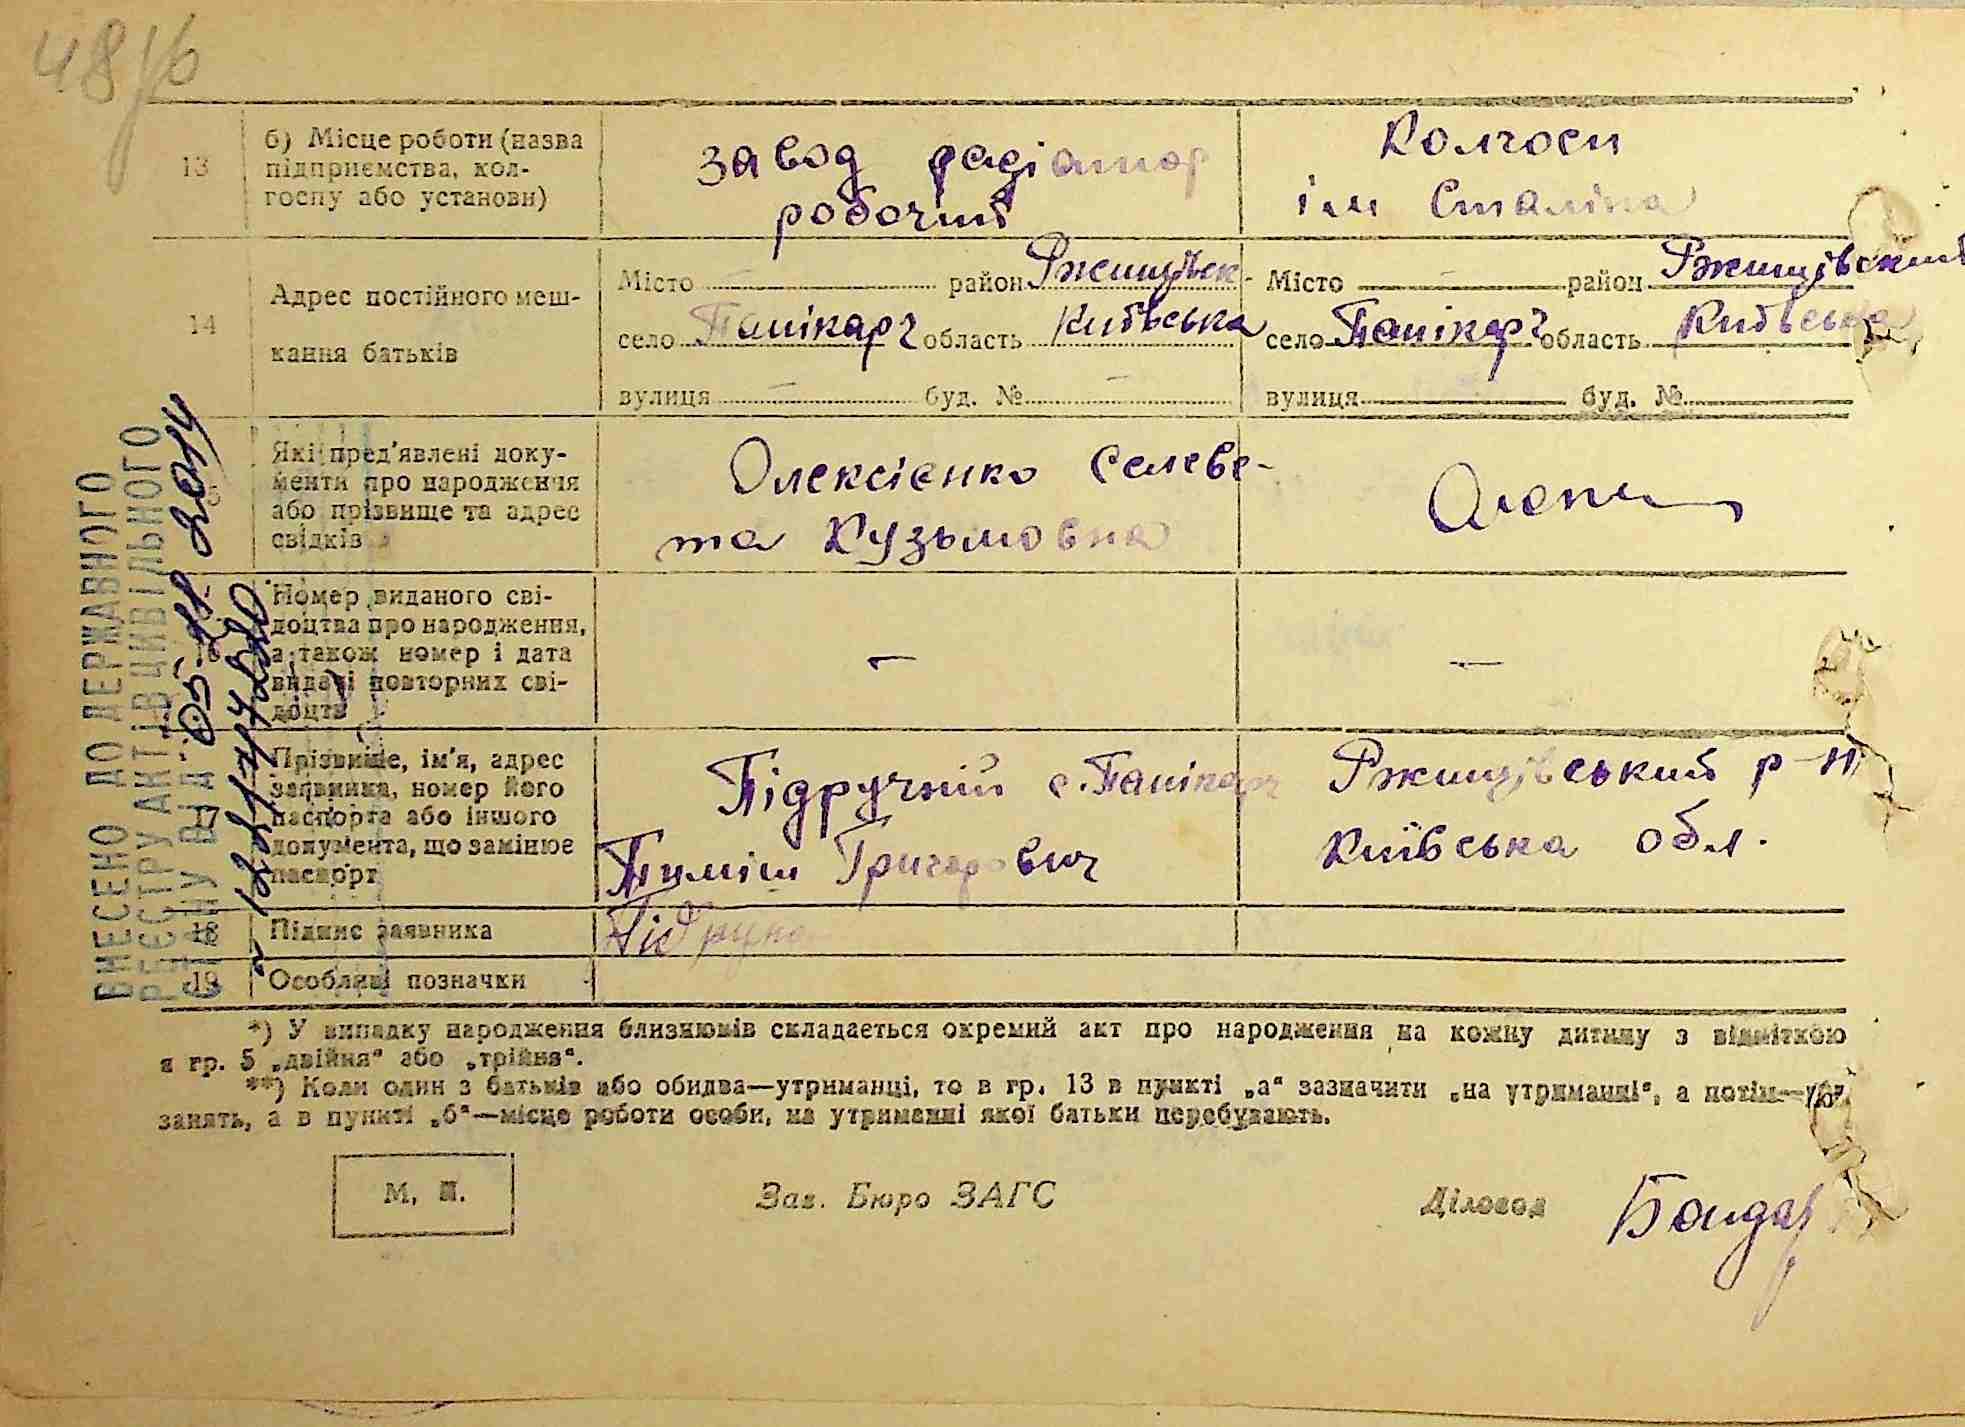 48
13
б) Місце роботи (назва
підприємства, кол-
госпу або установи)
завод радіатор
робочий
Колгосп
ім Сталіна
14
Адрес постійного меш-
кання батьків
Місто — район Ржищівськ-
село Панікарч область Київська
вулиця — буд. № —
Місто — район Ржищівський
село Панікарч область Київська
вулиця буд. №
Які пред'явлені доку-
менти про народження
або прізвище та адрес
свідків
Олексієнко Селеве-
та Кузьмовна
Номер виданого сві-
доцтва про народження,
а також номер і дата
видачі повторних сві-
доцтв
—
—
17
Прізвище, ім'я, адрес
заявника, номер його
паспорта або іншого
документа, що замінює
паспорт
Підручній с. Панікарч
Тиміш Григорович
Ржищівський р-н
Київська обл.
18
Підпис заявника
Підручн
19
Особливі позначки
*) У випадку народження близнюків складається окремий акт про народження на кожну дитину з відміткою
в гр. 5 „двійня“ або „трійня“.
**) Коли один з батьків або обидва—утриманці, то в гр. 13 в пункті „а“ зазначити „на утриманні“, а потім—
занять, а в пункті „б“—місце роботи особи, на утриманні якої батьки перебувають.
М. П.
Зав. Бюро ЗАГС
Діловод
Бондар
ВНЕСЕНО ДО ДЕРЖАВНОГО
РЕЄСТРУ АКТІВ ЦИВІЛЬНОГО
СТАНУ ВІД